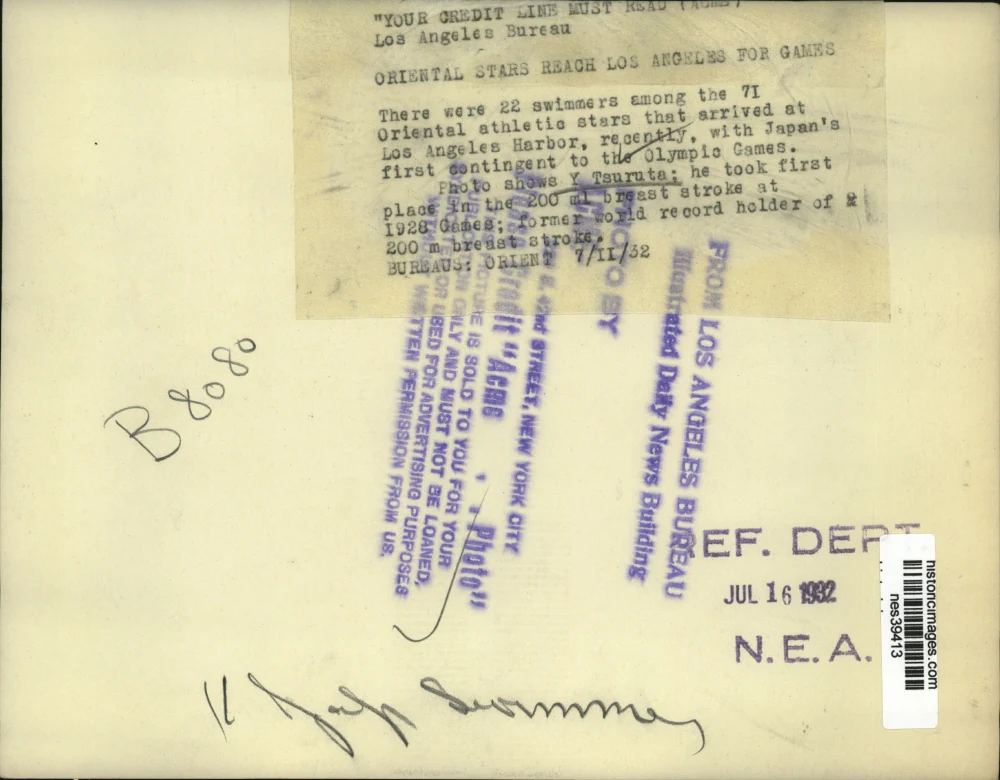 "YOUR CREDIT LINE MUST READ (ACME)
Los Angeles Bureau
ORIENTAL STARS REACH LOS ANGELES FOR GAMES
There were 22 swimmers among the 7I
Oriental athletic stars that arrived at
Los Angeles Harbor, recently, with Japan's
first contingent to the Olympic Games.
Photo shows Y Tsuruta; he took first
place in the 200 ml breast stroke at
I928 Games; former world record holder of &
200 m breast stroke.
BUREAUS: ORIENT 7/II/32
B 8080
PHOTO BY
42nd STREET, NEW YORK CITY
Credit "Acme Photo"
THIS PICTURE IS SOLD TO YOU FOR YOUR
PUBLICATION ONLY AND MUST NOT BE LOANED,
OR USED FOR ADVERTISING PURPOSES
WRITTEN PERMISSION FROM US.
FROM LOS ANGELES BUREAU
Illustrated Daily News Building
REF. DEPT
JUL 16 1932
N.E.A.
historicimages.com
nes39413